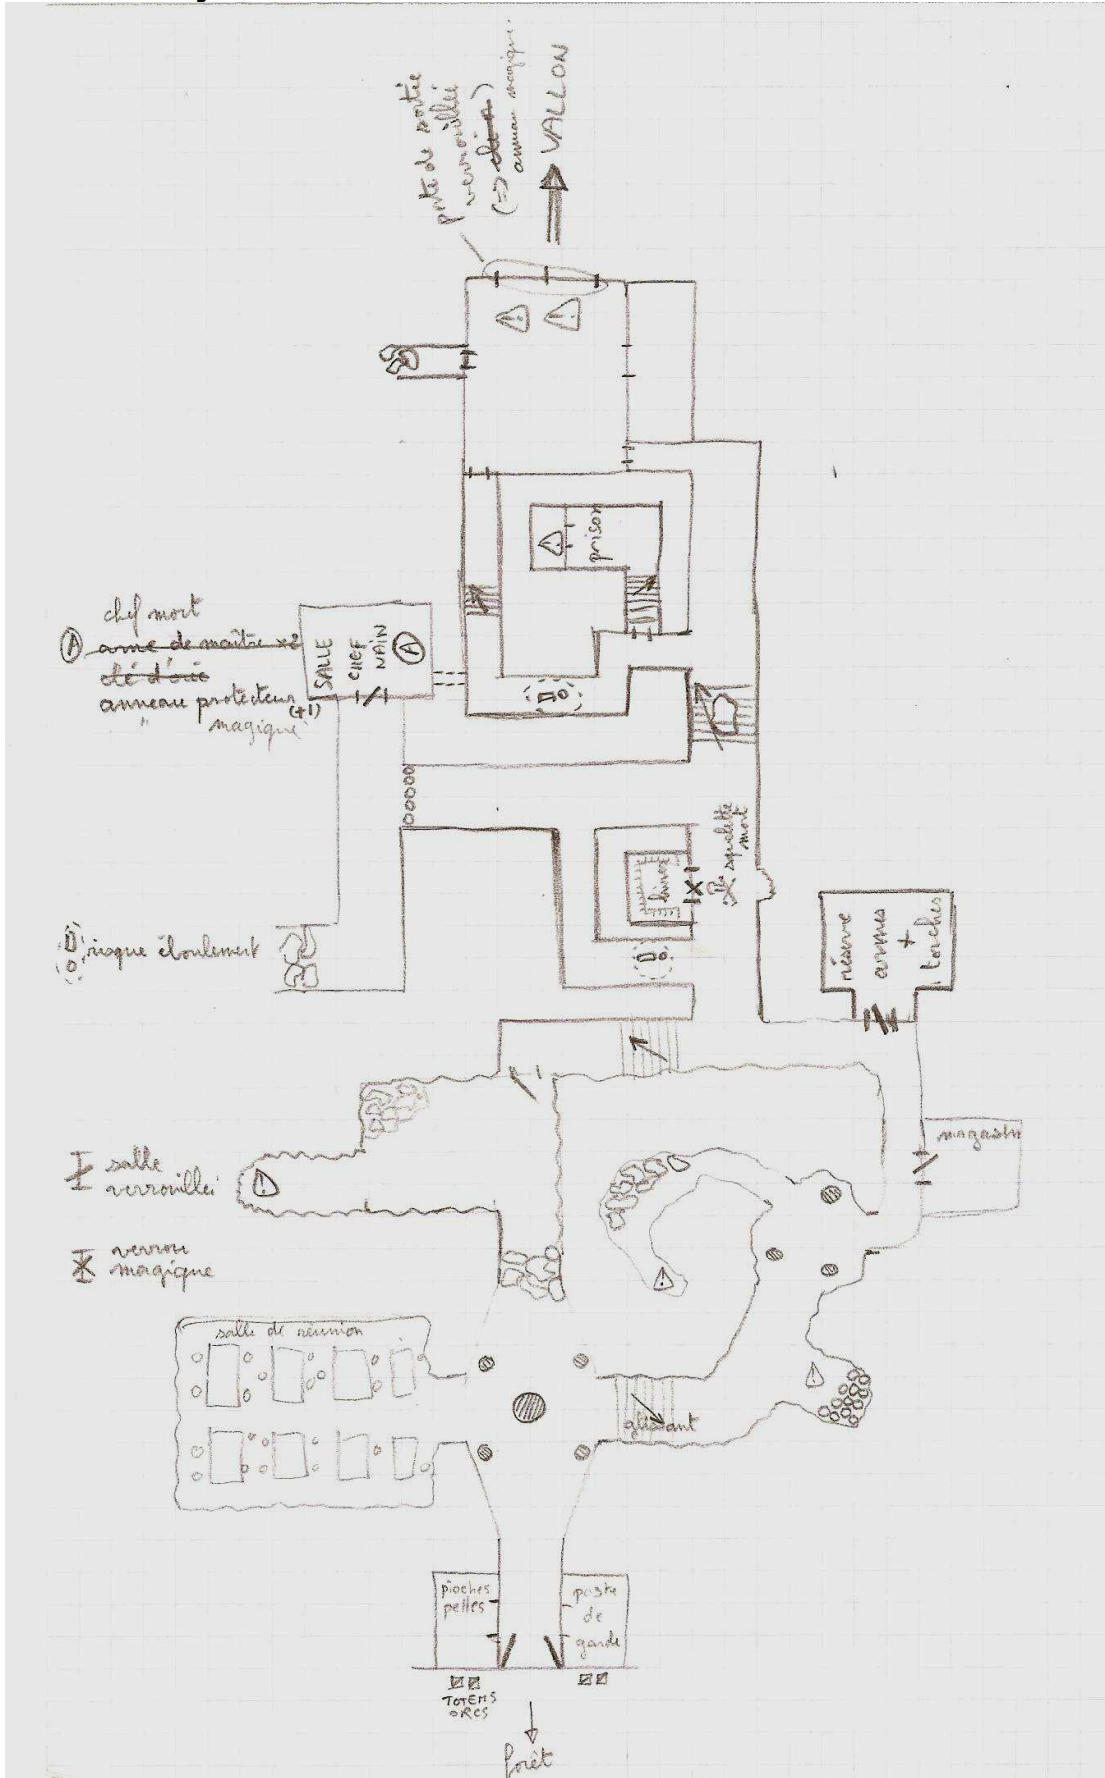 porte de sortie
verrouillée
(=> clé A)
anneau magique.
VALLON
prison
chef mort
A arme de maître x2
clé d'or
anneau protecteur
(+1)
" magique
SALLE
CHEF
NAIN
A
squelette
mort
livres
risque éboulement
réserve
armes
+
torches
magasin
salle
verrouillée
verrou
magique
salle de réunion
glissant
pioches
pelles
poste
de
garde
TOTEMS
ORCS
forêt